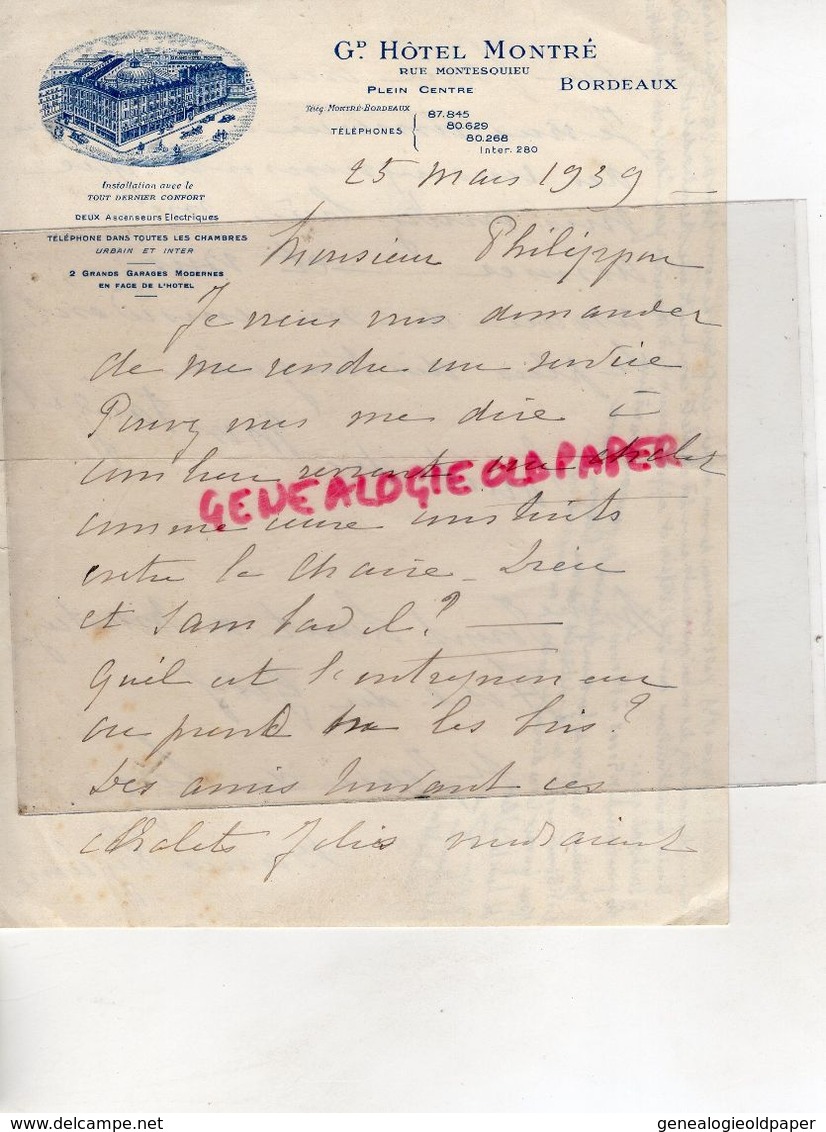 GRAND HOTEL MONTRÉ
GD. HÔTEL MONTRÉ
RUE MONTESQUIEU
PLEIN CENTRE
BORDEAUX
Télég. MONTRÉ-BORDEAUX
TÉLÉPHONES
87.845
80.629
80.268
Inter. 280
25 Mars 1939
Installation avec le
TOUT DERNIER CONFORT
DEUX Ascenseurs Electriques
TÉLÉPHONE DANS TOUTES LES CHAMBRES
URBAIN ET INTER
2 GRANDS GARAGES MODERNES
EN FACE DE L'HOTEL
Monsieur Philippon
Je viens vous demander
de me rendre un service
Pouvez vous me dire à
combien revient un chalet
comme ceux construits
entre la Chaise-Dieu
et Sembadel?
Quel est l'entrepreneur
ou prend les bois?
Des amis trouvant ces
chalets jolis voudraient
GENEALOGIE OLD PAPER
www.delcampe.net
genealogieoldpaper